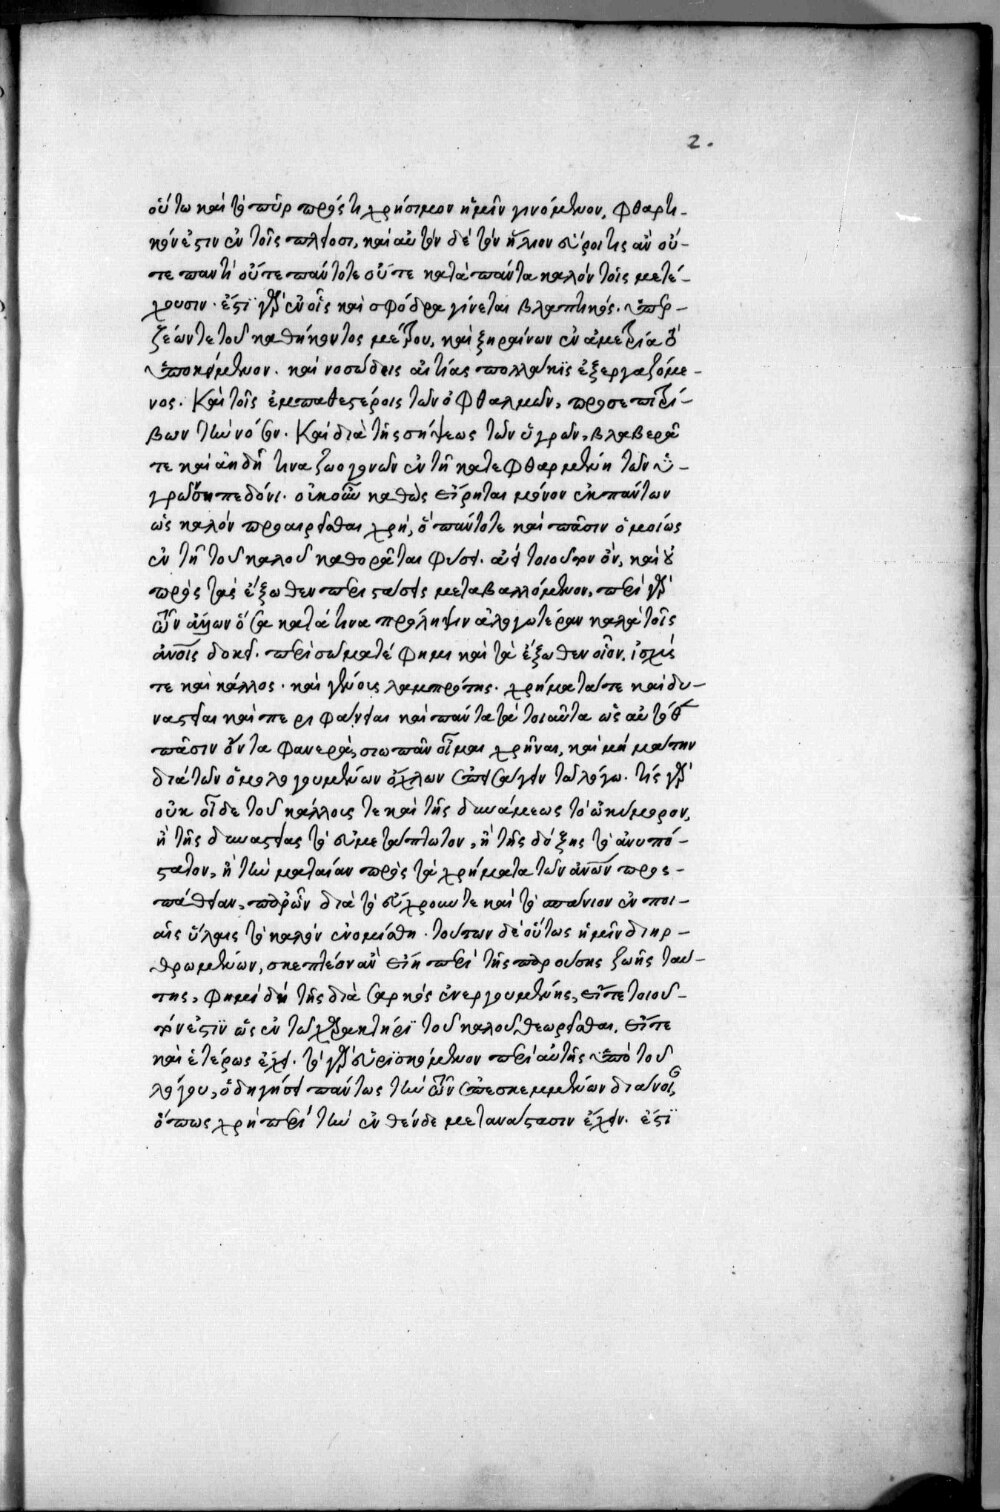 2.
οὕτω καὶ τὸ πῦρ πρός τι χρήσιμον ἡμῖν γινόμενον, φθαρτι-
κόν ἐστιν ἐν τοῖς πλείοσι, καὶ αὐτὸν δὲ τὸν ἥλιον εὕροι τις ἂν οὔ-
τε παντὶ οὔτε πάντοτε οὔτε κατὰ πάντα καλὸν τοῖς μετέ-
χουσιν. ἔστι γὰρ ἐν οἷς καὶ σφόδρα γίνεται βλαπτικός. ὑπερ-
ζέων τε τοῦ καθήκοντος μέτρου, καὶ ξηραίνων ἐν ἀμετρία τὸ
ὑποκείμενον. καὶ νοσώδεις αἰτίας πολλάκις ἐξεργαζόμε-
νος. Καὶ τοῖς ἐμπαθεστέροις τῶν ὀφθαλμῶν, προσεπιτρί-
βων τὴν νόσον. Καὶ διὰ τῆς σήψεως τῶν ὑγρῶν, βλαβερά
τε καὶ ἀηδῆ τινα ζωογονῶν ἐν τῇ κατεφθαρμένη τῶν ὑ-
γρῶν σηπεδόνι. οὐκοῦν καθὼς εἴρηται μόνον ἐκ πάντων
ὡς καλὸν προαιρεῖσθαι χρή, ὃ πάντοτε καὶ πᾶσιν ὁμοίως
ἐν τῇ τοῦ καλοῦ καθορᾶται φύσει. ἀεὶ τοιοῦτον ὄν, καὶ οὐ
πρὸς τὰς ἔξωθεν περιστάσεις μεταβαλλόμενον, περὶ γὰρ
τῶν ἄλλων ὅσα κατά τινα πρόληψιν ἀλογωτέραν καλὰ τοῖς
ἀνοις δοκεῖ. περὶ σῶμα τέ φημι καὶ τὰ ἔξωθεν οἷον, ἰσχύς
τε καὶ κάλλος. καὶ γένους λαμπρότης. χρήματά τε καὶ δυ-
ναστεῖαι καὶ περιφάνειαι καὶ πάντα τὰ τοιαῦτα ὡς αὐτόθεν
πᾶσιν ὄντα φανερὰ, σιωπᾶν οἶμαι χρῆναι, καὶ μὴ μάτην
διὰ τῶν ὁμολογουμένων ὄχλον ἐπεισάγειν τῷ λόγω. τίς γὰρ
οὐκ οἶδε τοῦ κάλλους τε καὶ τῆς δυνάμεως τὸ ὠκύμορον,
ἢ τῆς δυναστείας τὸ εὐμετάπτωτον, ἢ τῆς δόξης τὸ ἀνυπό-
στατον, ἢ τὴν ματαίαν πρὸς τὰ χρήματα τῶν ἀνων προσ-
πάθειαν, παρ ὧν διὰ τὸ εὔχρουν τε καὶ τὸ σπάνιον ἐν ποι-
αῖς ὕλαις τὸ καλὸν ἐνομίσθη. τούτων δὲ οὕτως ἡμῖν διηρ-
θρωμένων, σκεπτέον ἂν εἴη περὶ τῆς παρούσης ζωῆς ταύ-
της, φημὶ δὴ τῆς διὰ σαρκὸς ἐνεργουμένης, εἴτε τοιοῦ-
τόν ἐστιν ὡς ἐν τῷ χαρακτῆρι τοῦ καλοῦ θεωρεῖσθαι, εἴτε
καὶ ἑτέρως ἔχει. τὸ γὰρ εὑρισκόμενον περὶ αὐτῆς ὑπὸ τοῦ
λόγου, ὁδηγήσει πάντως τὴν τῶν ἐπεσκεμμένων διάνοιαν,
ὅπως χρὴ περὶ τὴν ἐνθένδε μετανάστασιν ἔχειν. ἔστι